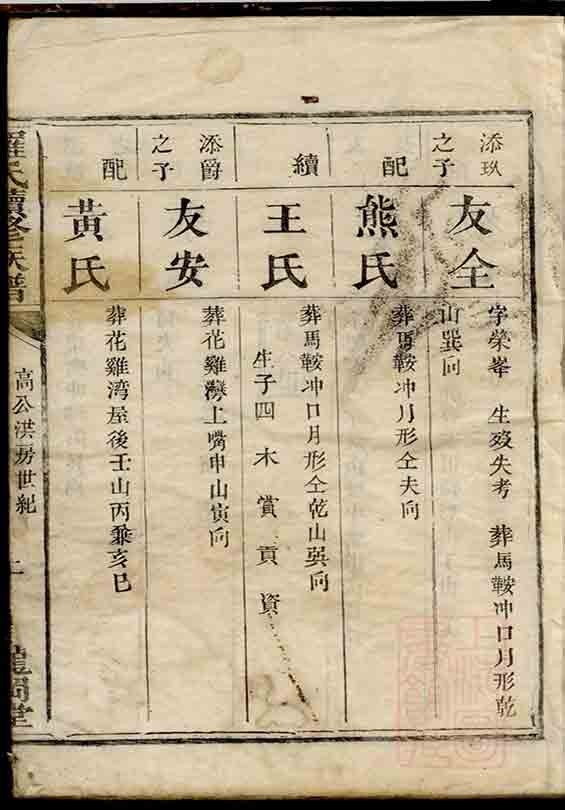 添玖
之子
友全
字榮峯 生歿失考 葬馬鞍冲口月形乾
山巽向
配
熊氏
葬馬鞍冲月形仝夫向
續
王氏
葬馬鞍冲口月形仝乾山巽向
生子四 木 賞 貢 資
添爵
之子
友安
葬花雞灣上嘴申山寅向
配
黃氏
葬花雞湾屋後壬山丙兼亥巳
羅氏續修族譜
高公洪房世紀